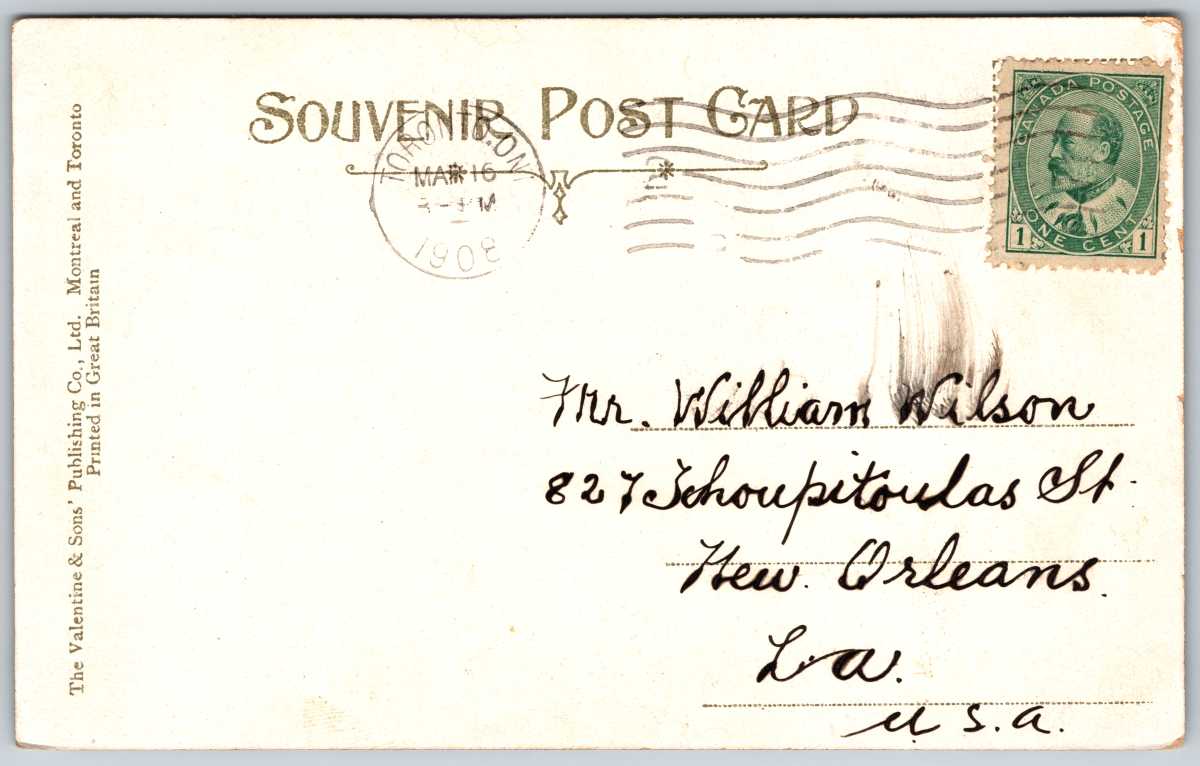 SOUVENIR POST CARD
TORONTO, ONT
MAR 16
M
1908
CANADA POSTAGE
ONE CENT
1 1
Mr. William Wilson
827 Tchoupitoulas St.
New. Orleans.
La.
U.S.A.
The Valentine & Sons' Publishing Co., Ltd. Montreal and Toronto
Printed in Great Britain